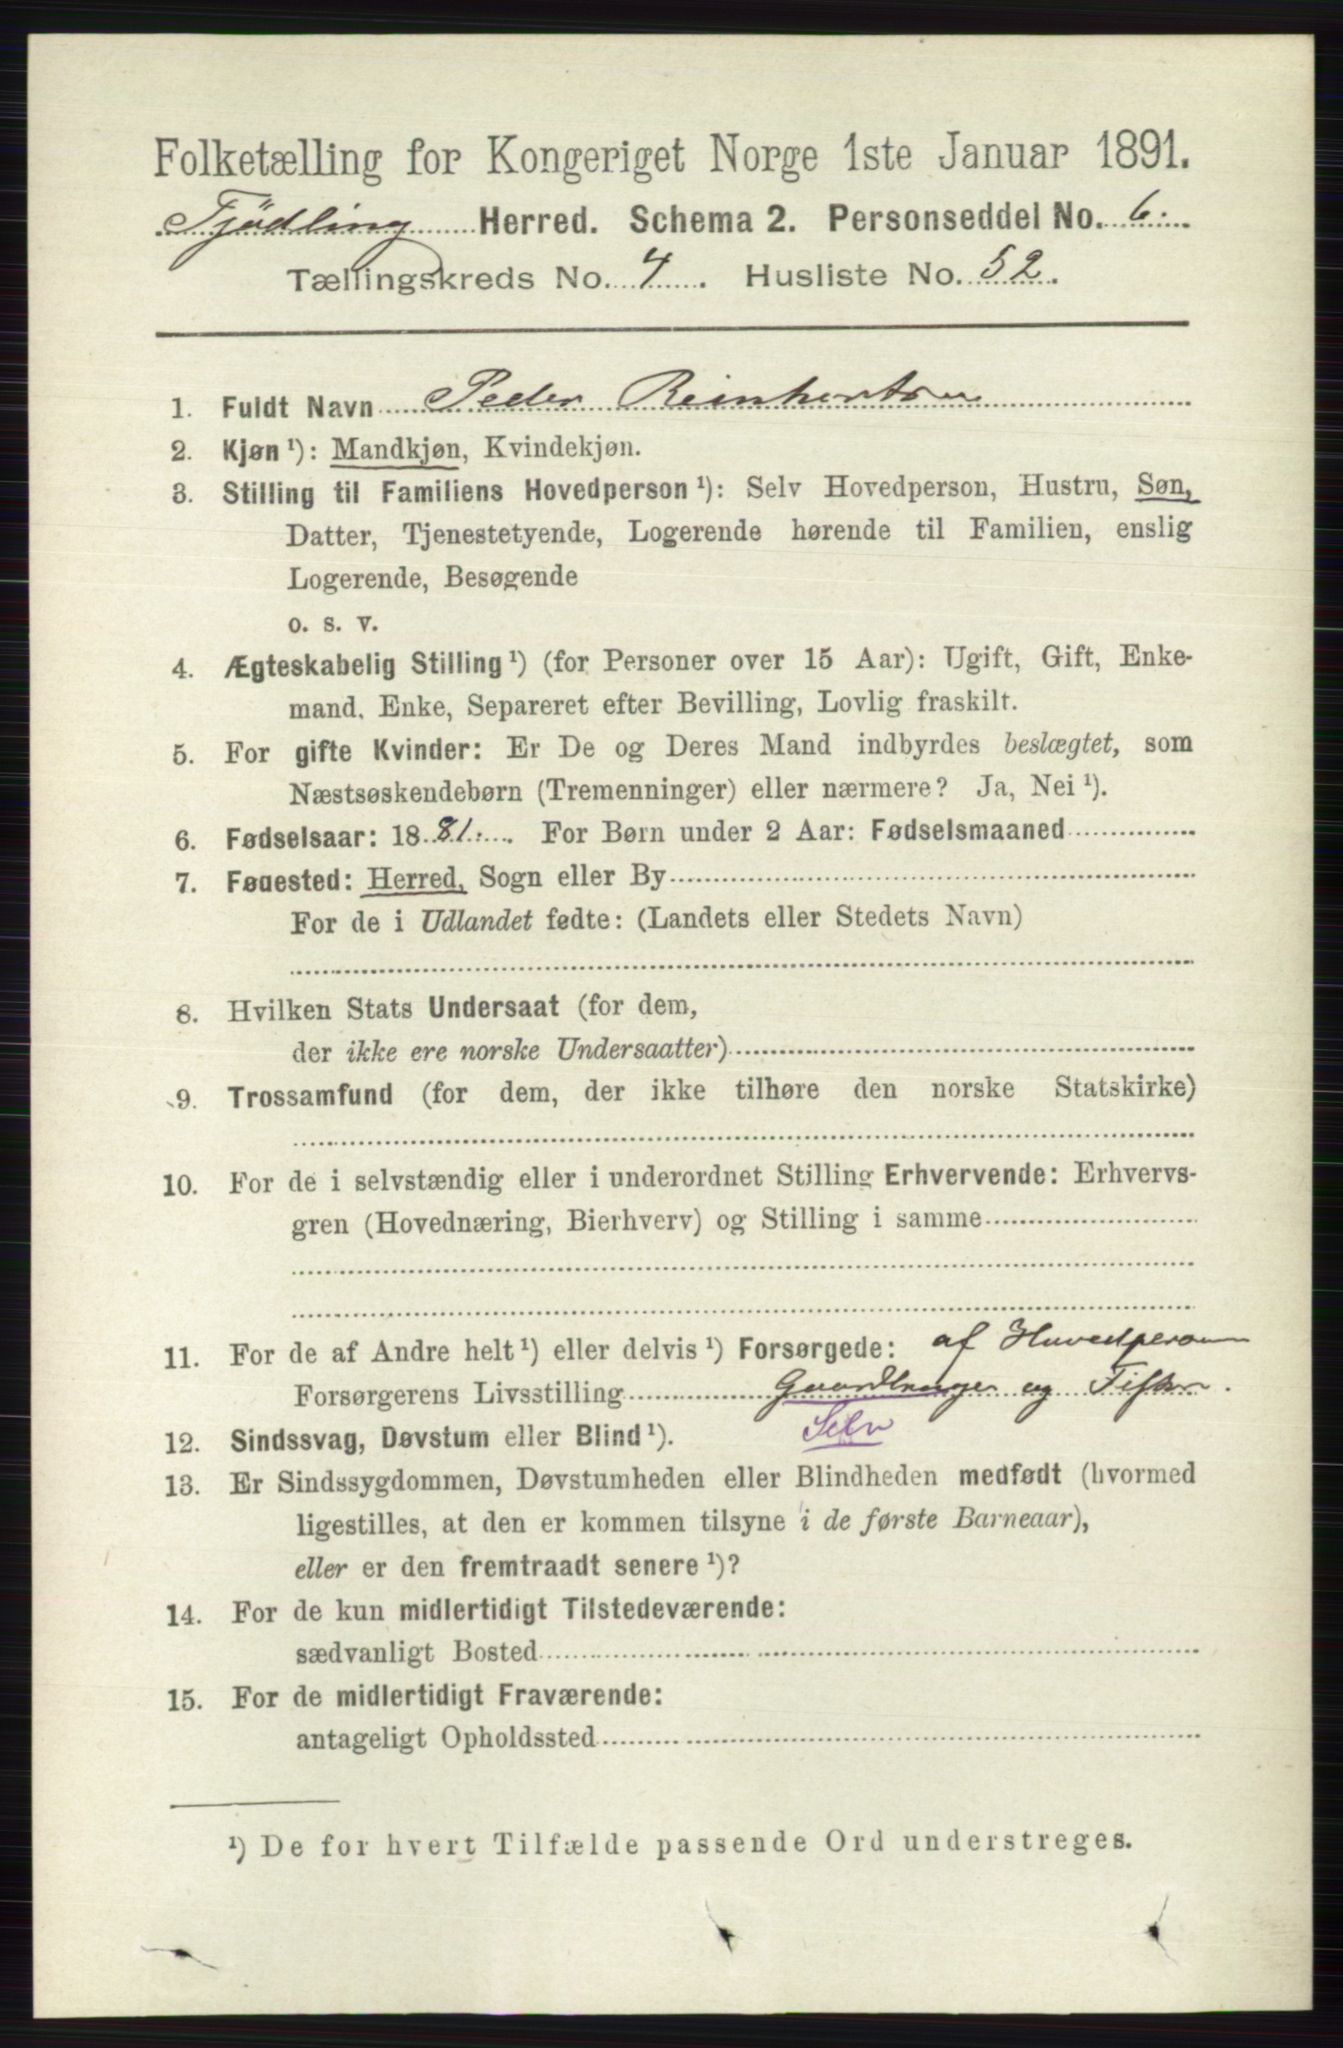 Folketælling for Kongeriget Norge 1ste Januar 1891.
Tjödling Herred. Schema 2. Personseddel No. 6.
Tællingskreds No. 4. Husliste No. 52.
1. Fuldt Navn Peder Reinhertsen
2. Kjøn ¹): Mandkjøn, Kvindekjøn.
3. Stilling til Familiens Hovedperson ¹): Selv Hovedperson, Hustru, Søn,
Datter, Tjenestetyende, Logerende hørende til Familien, enslig
Logerende, Besøgende
o. s. v.
4. Ægteskabelig Stilling ¹) (for Personer over 15 Aar): Ugift, Gift, Enke-
mand, Enke, Separeret efter Bevilling, Lovlig fraskilt.
5. For gifte Kvinder: Er De og Deres Mand indbyrdes beslægtet, som
Næstsøskendebørn (Tremenninger) eller nærmere? Ja, Nei ¹).
6. Fødselsaar: 1881. For Børn under 2 Aar: Fødselsmaaned
7. Fødested: Herred, Sogn eller By
For de i Udlandet fødte: (Landets eller Stedets Navn)
8. Hvilken Stats Undersaat (for dem,
der ikke ere norske Undersaatter)
9. Trossamfund (for dem, der ikke tilhøre den norske Statskirke)
10. For de i selvstændig eller i underordnet Stilling Erhvervende: Erhvervs-
gren (Hovednæring, Bierhverv) og Stilling i samme
11. For de af Andre helt ¹) eller delvis ¹) Forsørgede: af Hovedperson
Forsørgerens Livsstilling Gaardbruger og Fisker.
12. Sindssvag, Døvstum eller Blind ¹). Selv
13. Er Sindssygdommen, Døvstumheden eller Blindheden medfødt (hvormed
ligestilles, at den er kommen tilsyne i de første Barneaar),
eller er den fremtraadt senere ¹)?
14. For de kun midlertidigt Tilstedeværende:
sædvanligt Bosted
15. For de midlertidigt Fraværende:
antageligt Opholdssted
¹) De for hvert Tilfælde passende Ord understreges.